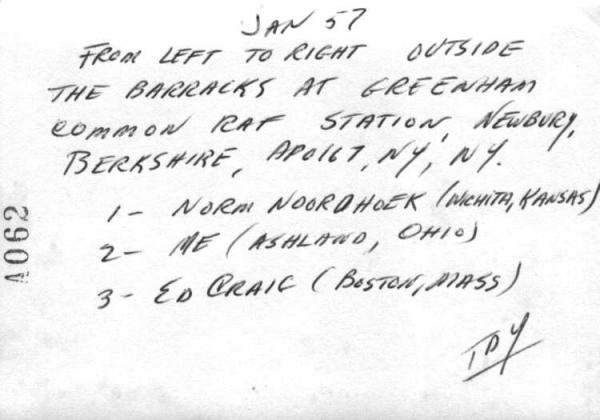 JAN 57
FROM LEFT TO RIGHT OUTSIDE
THE BARRACKS AT GREENHAM
COMMON RAF STATION, NEWBURY,
BERKSHIRE, APO167, NY, NY.
1- NORM NOORDHOEK (WICHITA, KANSAS)
2- ME (ASHLAND, OHIO)
3- ED CRAIG (BOSTON, MASS)
TDY
4062